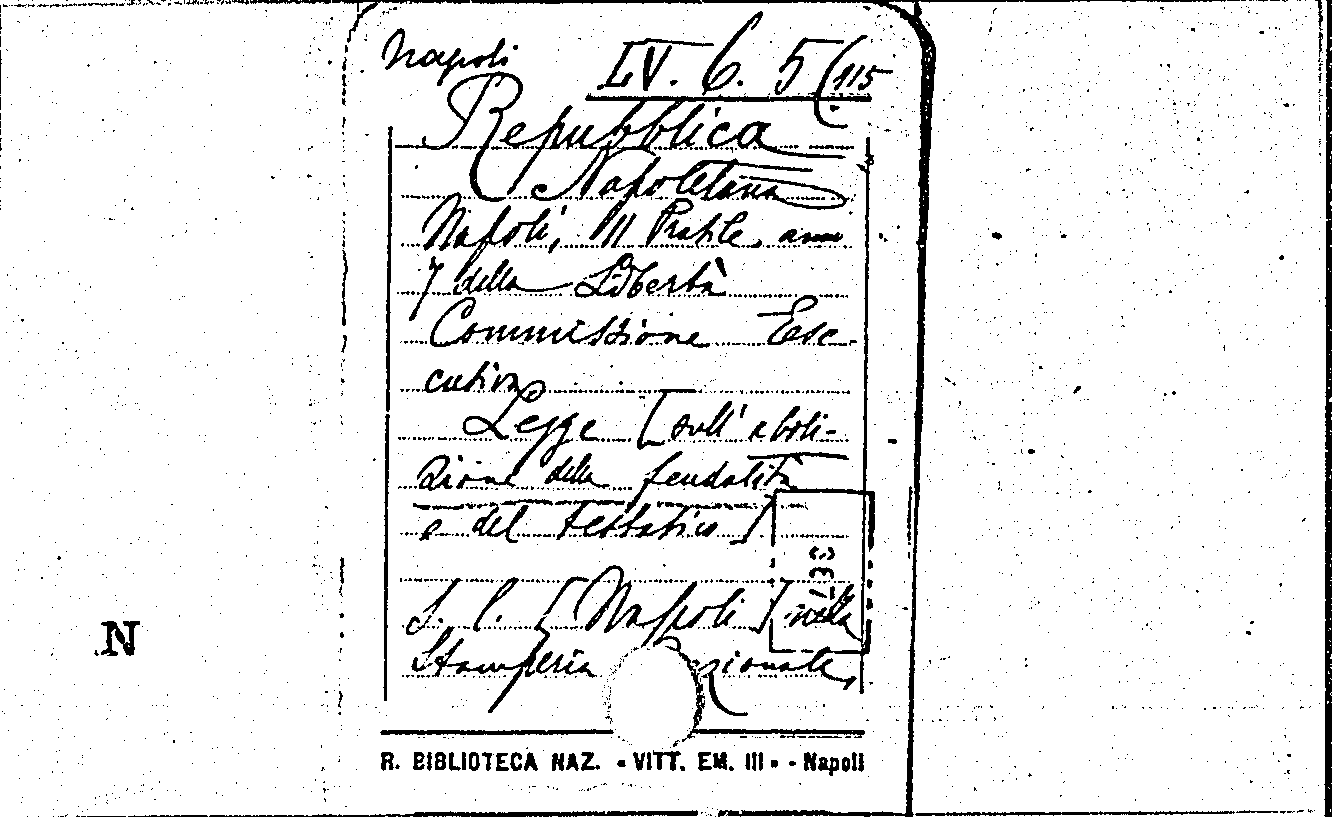 Napoli LV. 6. 5(115
Repubblica
Napoletana
Napoli, 11 Pratile, anno
7 della Libertà
Commissione Ese-
cutiva
Legge [sull'aboli-
zione della feudalità
e del testatico]
S. l. [Napoli] nella
Stamperia Nazionale,
N
R. BIBLIOTECA NAZ. - VITT. EM. III - - Napoli